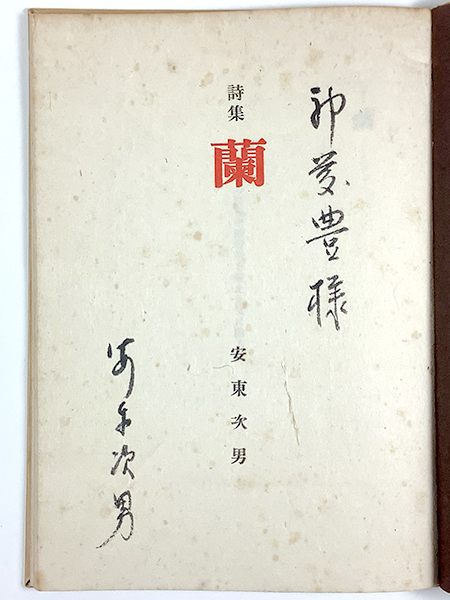 豊様
詩集
蘭
安東次男
安東次男